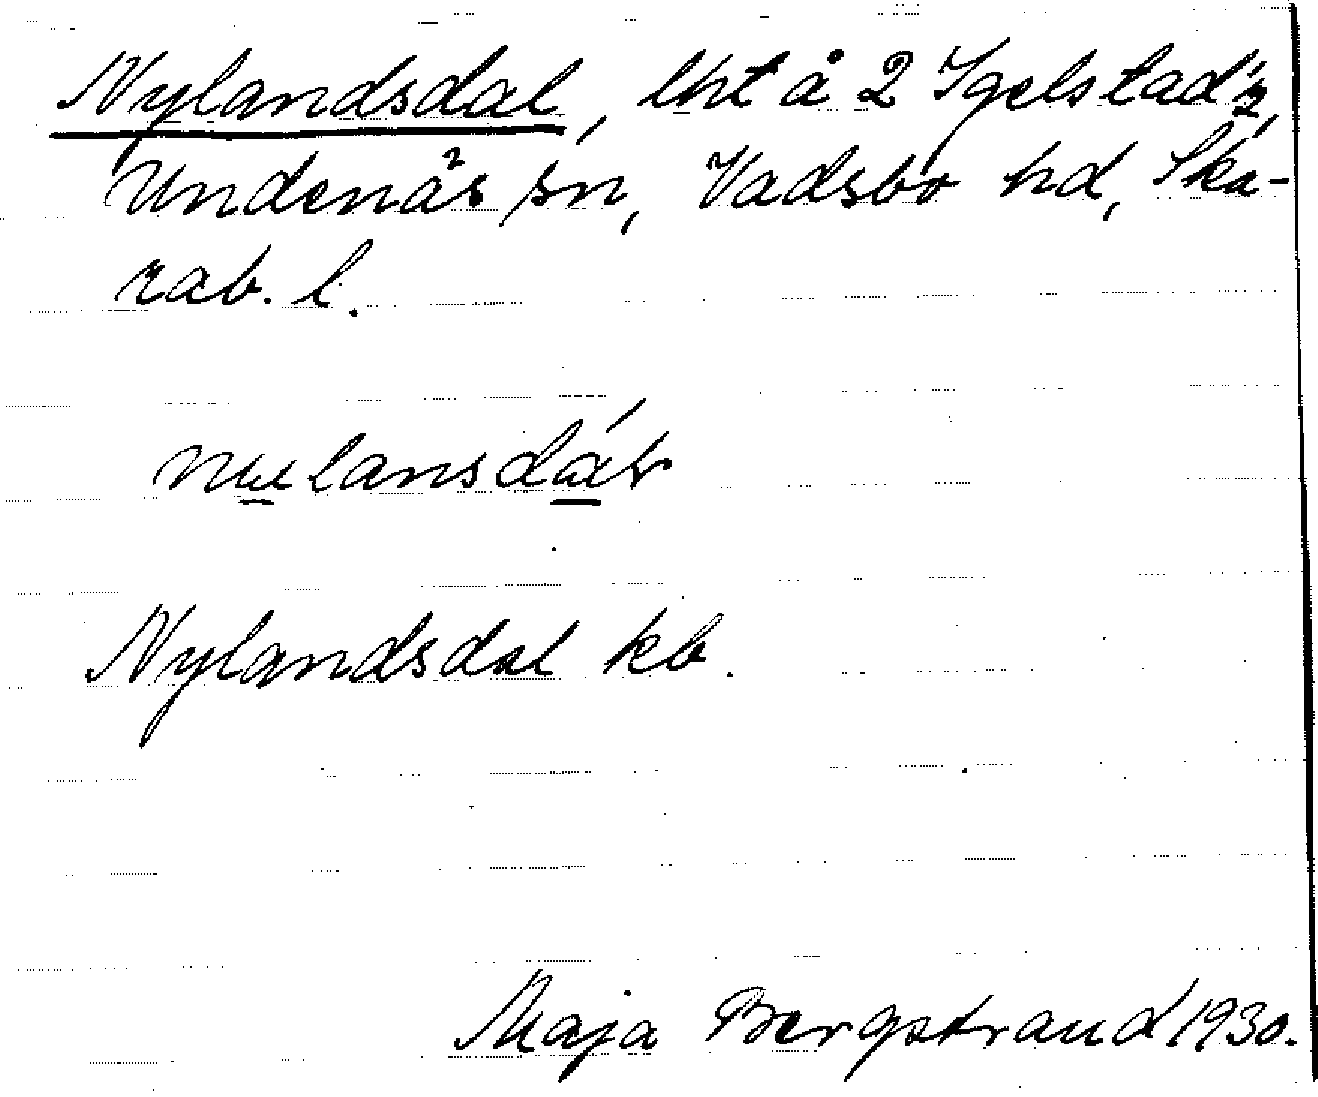 Nylandsdal, lht å 2 Igelstad ½,
Undenäs sn, Vadsbo hd, Ska-
rab. l.
Nylandsdal kb.
Maja Bergstrand 1930.